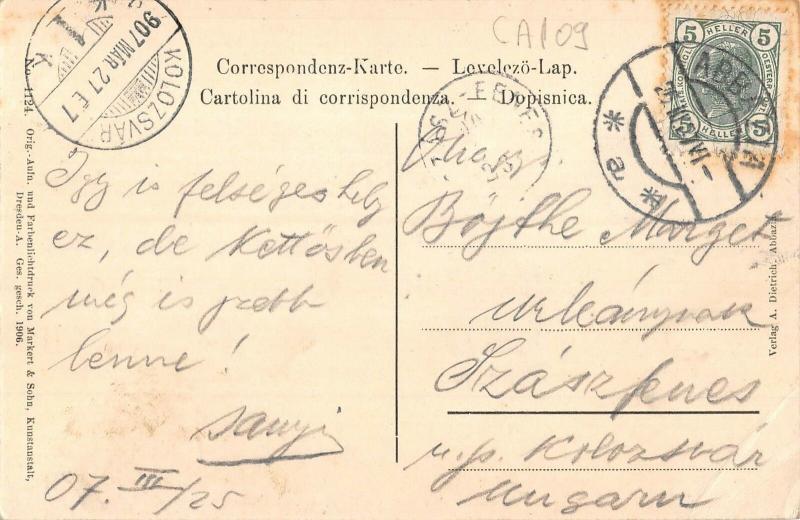 CA109
Correspondenz-Karte. — Levelezö-Lap.
Cartolina di corrispondenza. — Dopisnica.
KOLOZSVÁR
907 MÁR. 27 E 7
K
5 HELLER 5
5 HELLER 5
ABBA
* a *
Így is felséges hely
ez, de kettősben
még is szebb
lenne!
Sanyi
07. III/25
Böjthe Marget
urleánynak
Szászfenes
u. p. Kolozsvár
Ungarn
No. 1124. Orig.-Aufn. und Farbenlichtdruck von Markert & Sohn, Kunstanstalt,
Dresden-A. Ges. gesch. 1906.
Verlag A. Dietrich, Abbazia